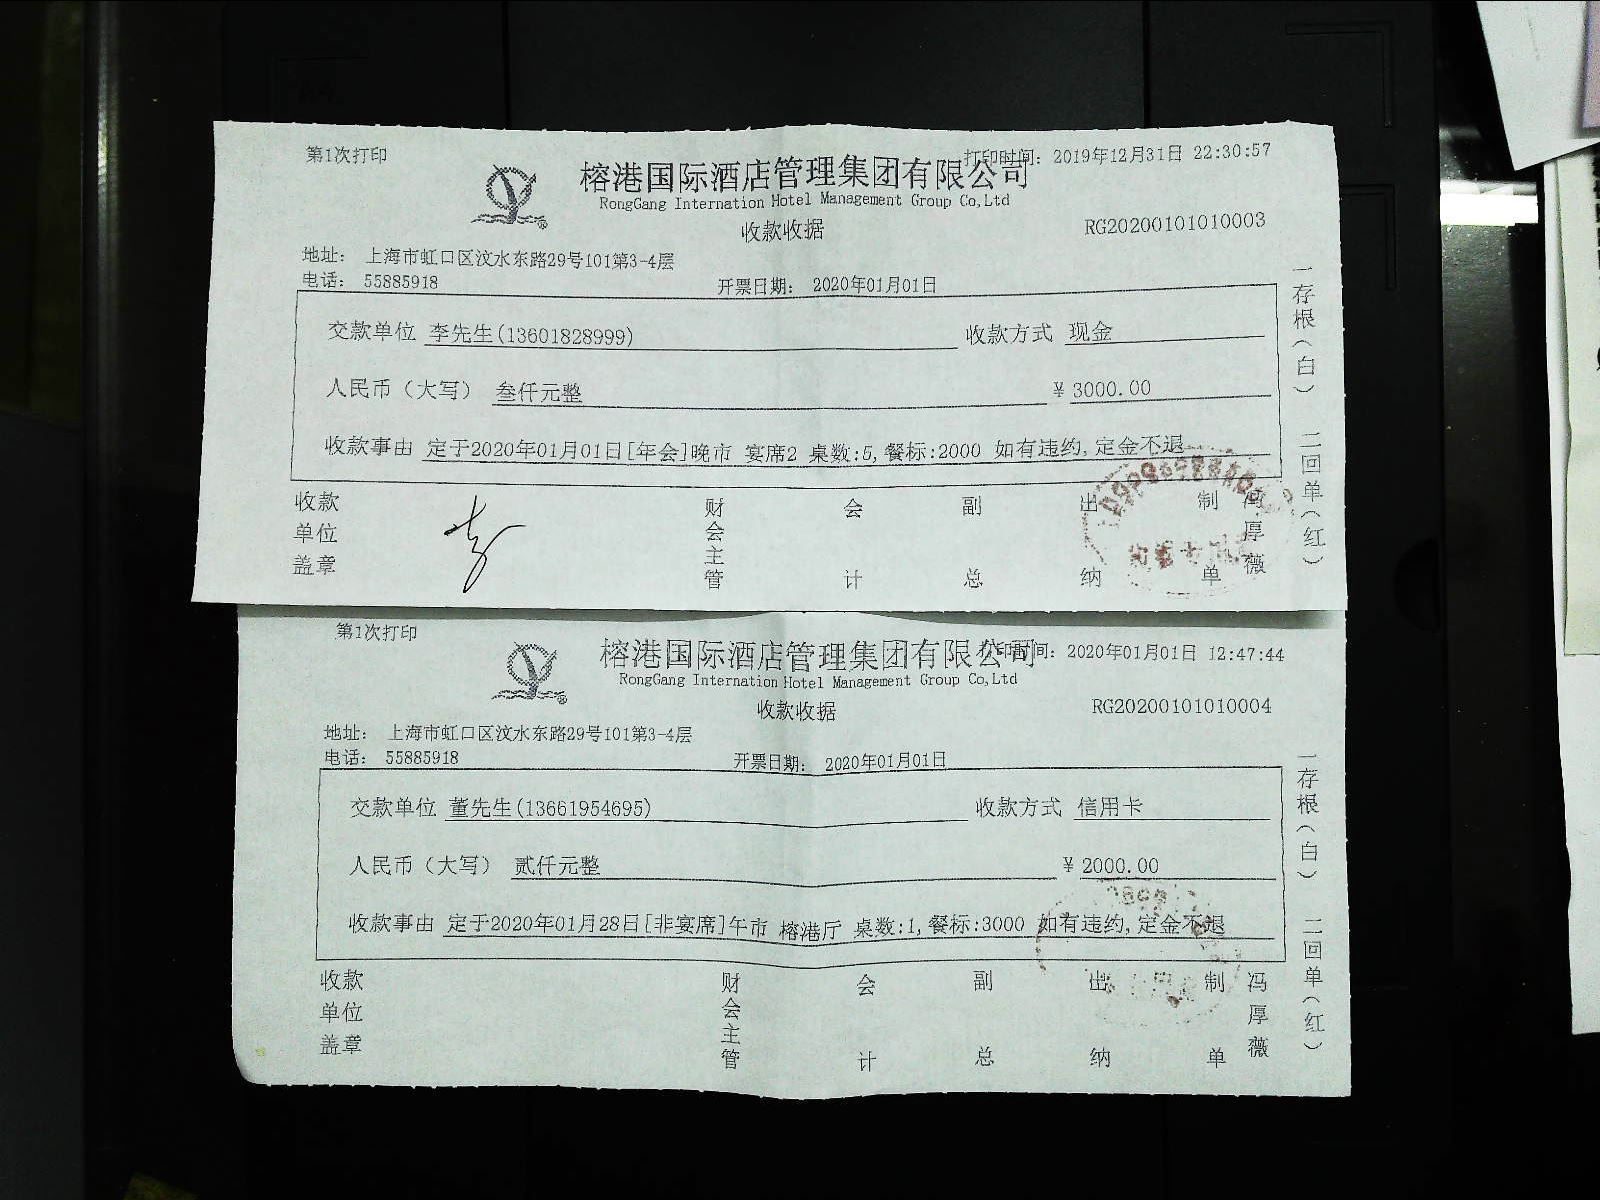 第1次打印
打印时间：2019年12月31日 22:30:57
榕港国际酒店管理集团有限公司
RongGang Internation Hotel Management Group Co,Ltd
收款收据
RG20200101010003
地址： 上海市虹口区汶水东路29号101第3-4层
电话： 55885918
开票日期： 2020年01月01日
交款单位 李先生(13601828999) 收款方式 现金
人民币（大写） 叁仟元整 ￥3000.00
收款事由 定于2020年01月01日[年会]晚市 宴席2 桌数:5,餐标:2000 如有违约,定金不退
收款单位盖章 财会主管 会计 副总 出纳 制单 冯厚薇
一存根（白） 二回单（红）
第1次打印
打印时间：2020年01月01日 12:47:44
榕港国际酒店管理集团有限公司
RongGang Internation Hotel Management Group Co,Ltd
收款收据
RG20200101010004
地址： 上海市虹口区汶水东路29号101第3-4层
电话： 55885918
开票日期： 2020年01月01日
交款单位 董先生(13661954695) 收款方式 信用卡
人民币（大写） 贰仟元整 ￥2000.00
收款事由 定于2020年01月28日[非宴席]午市 榕港厅 桌数:1,餐标:3000 如有违约,定金不退
收款单位盖章 财会主管 会计 副总 出纳 制单 冯厚薇
一存根（白） 二回单（红）